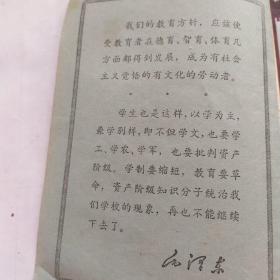 我们的教育方针，应该使
受教育者在德育、智育、体育几
方面都得到发展，成为有社会
主义觉悟的有文化的劳动者。
* * *
学生也是这样，以学为主，
兼学别样，即不但学文，也要学
工、学农、学军，也要批判资产
阶级。学制要缩短，教育要革
命，资产阶级知识分子统治我
们学校的现象，再也不能继续
下去了。
毛泽东